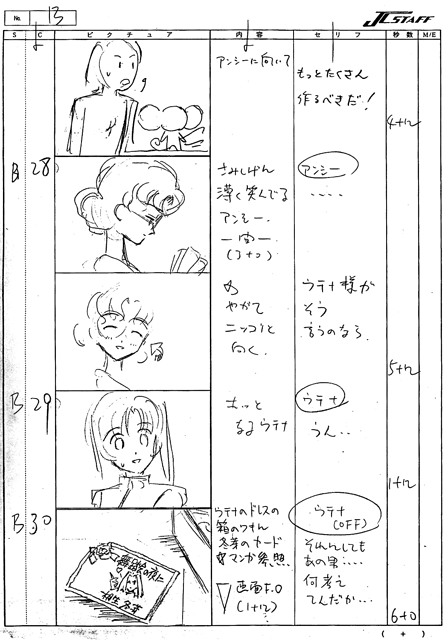 No. 13
J.C.STAFF
S C ピクチュア 内容 セリフ 秒数 M/E
アンシーに向いて
もっとたくさん
作るべきだ!
4+12
B 28
さみしげん
薄く笑んでる
アンシー.
一间一
(3+0)
アンシー
.....
やがて
ニッコリと
向く.
ウテナ様が
そう
言うのなら
5+12
B 29
ウテナ
うん..
1+12
B 30
ウテナのドレスの
箱のワキん
冬芽のカード
マンガ参照
画面F.O
(1+12)
ウテナ
(OFF)
それにしても
あの男....
何考え
てんだか...
6+0
( + )